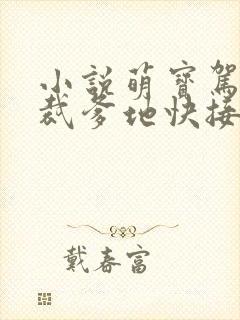 小說萌寶駕
裁爹地快接
戴春富